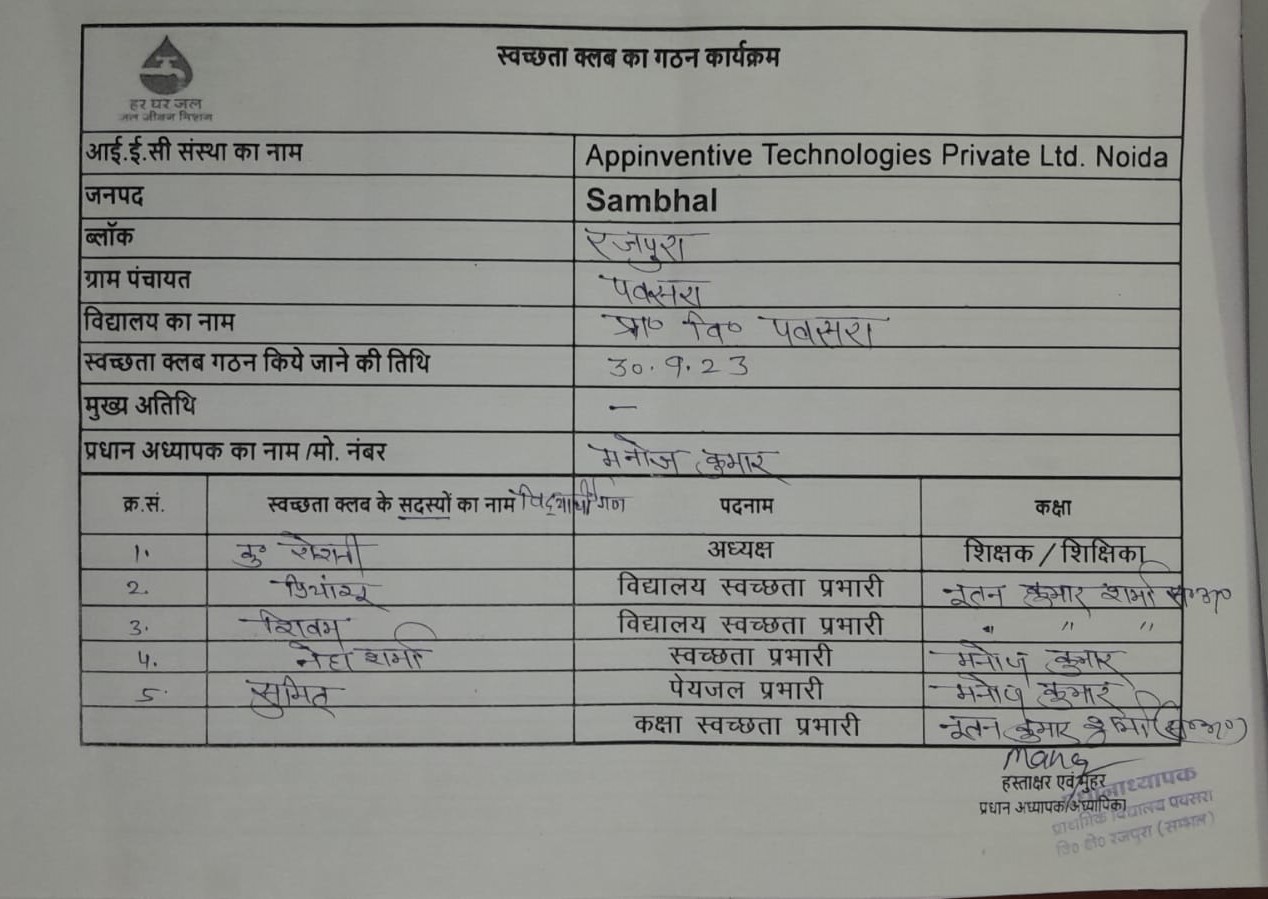 स्वच्छता क्लब का गठन कार्यक्रम
हर घर जल
जल जीवन मिशन
आई.ई.सी संस्था का नाम Appinventive Technologies Private Ltd. Noida
जनपद Sambhal
ब्लॉक रजपुरा
ग्राम पंचायत पवसरा
विद्यालय का नाम प्रा० वि० पवसरा
स्वच्छता क्लब गठन किये जाने की तिथि 30.9.23
मुख्य अतिथि —
प्रधान अध्यापक का नाम /मो. नंबर मनोज कुमार
क्र.सं. स्वच्छता क्लब के सदस्यों का नाम विद्यार्थीगण पदनाम कक्षा
1. कु० रोशनी अध्यक्ष शिक्षक / शिक्षिका
2. प्रियांशू विद्यालय स्वच्छता प्रभारी नूतन कुमार शर्मा स०अ०
3. शिवम विद्यालय स्वच्छता प्रभारी " " "
4. नेहा शर्मा स्वच्छता प्रभारी मनोज कुमार
5. सुमित पेयजल प्रभारी मनोज कुमार
कक्षा स्वच्छता प्रभारी नूतन कुमार शर्मा (स०अ०)
हस्ताक्षर एवं मुहर
प्रधान अध्यापक/अध्यापिका
प्रधानाध्यापक
प्राथमिक विद्यालय पवसरा
वि० क्षे० रजपुरा (सम्भल)